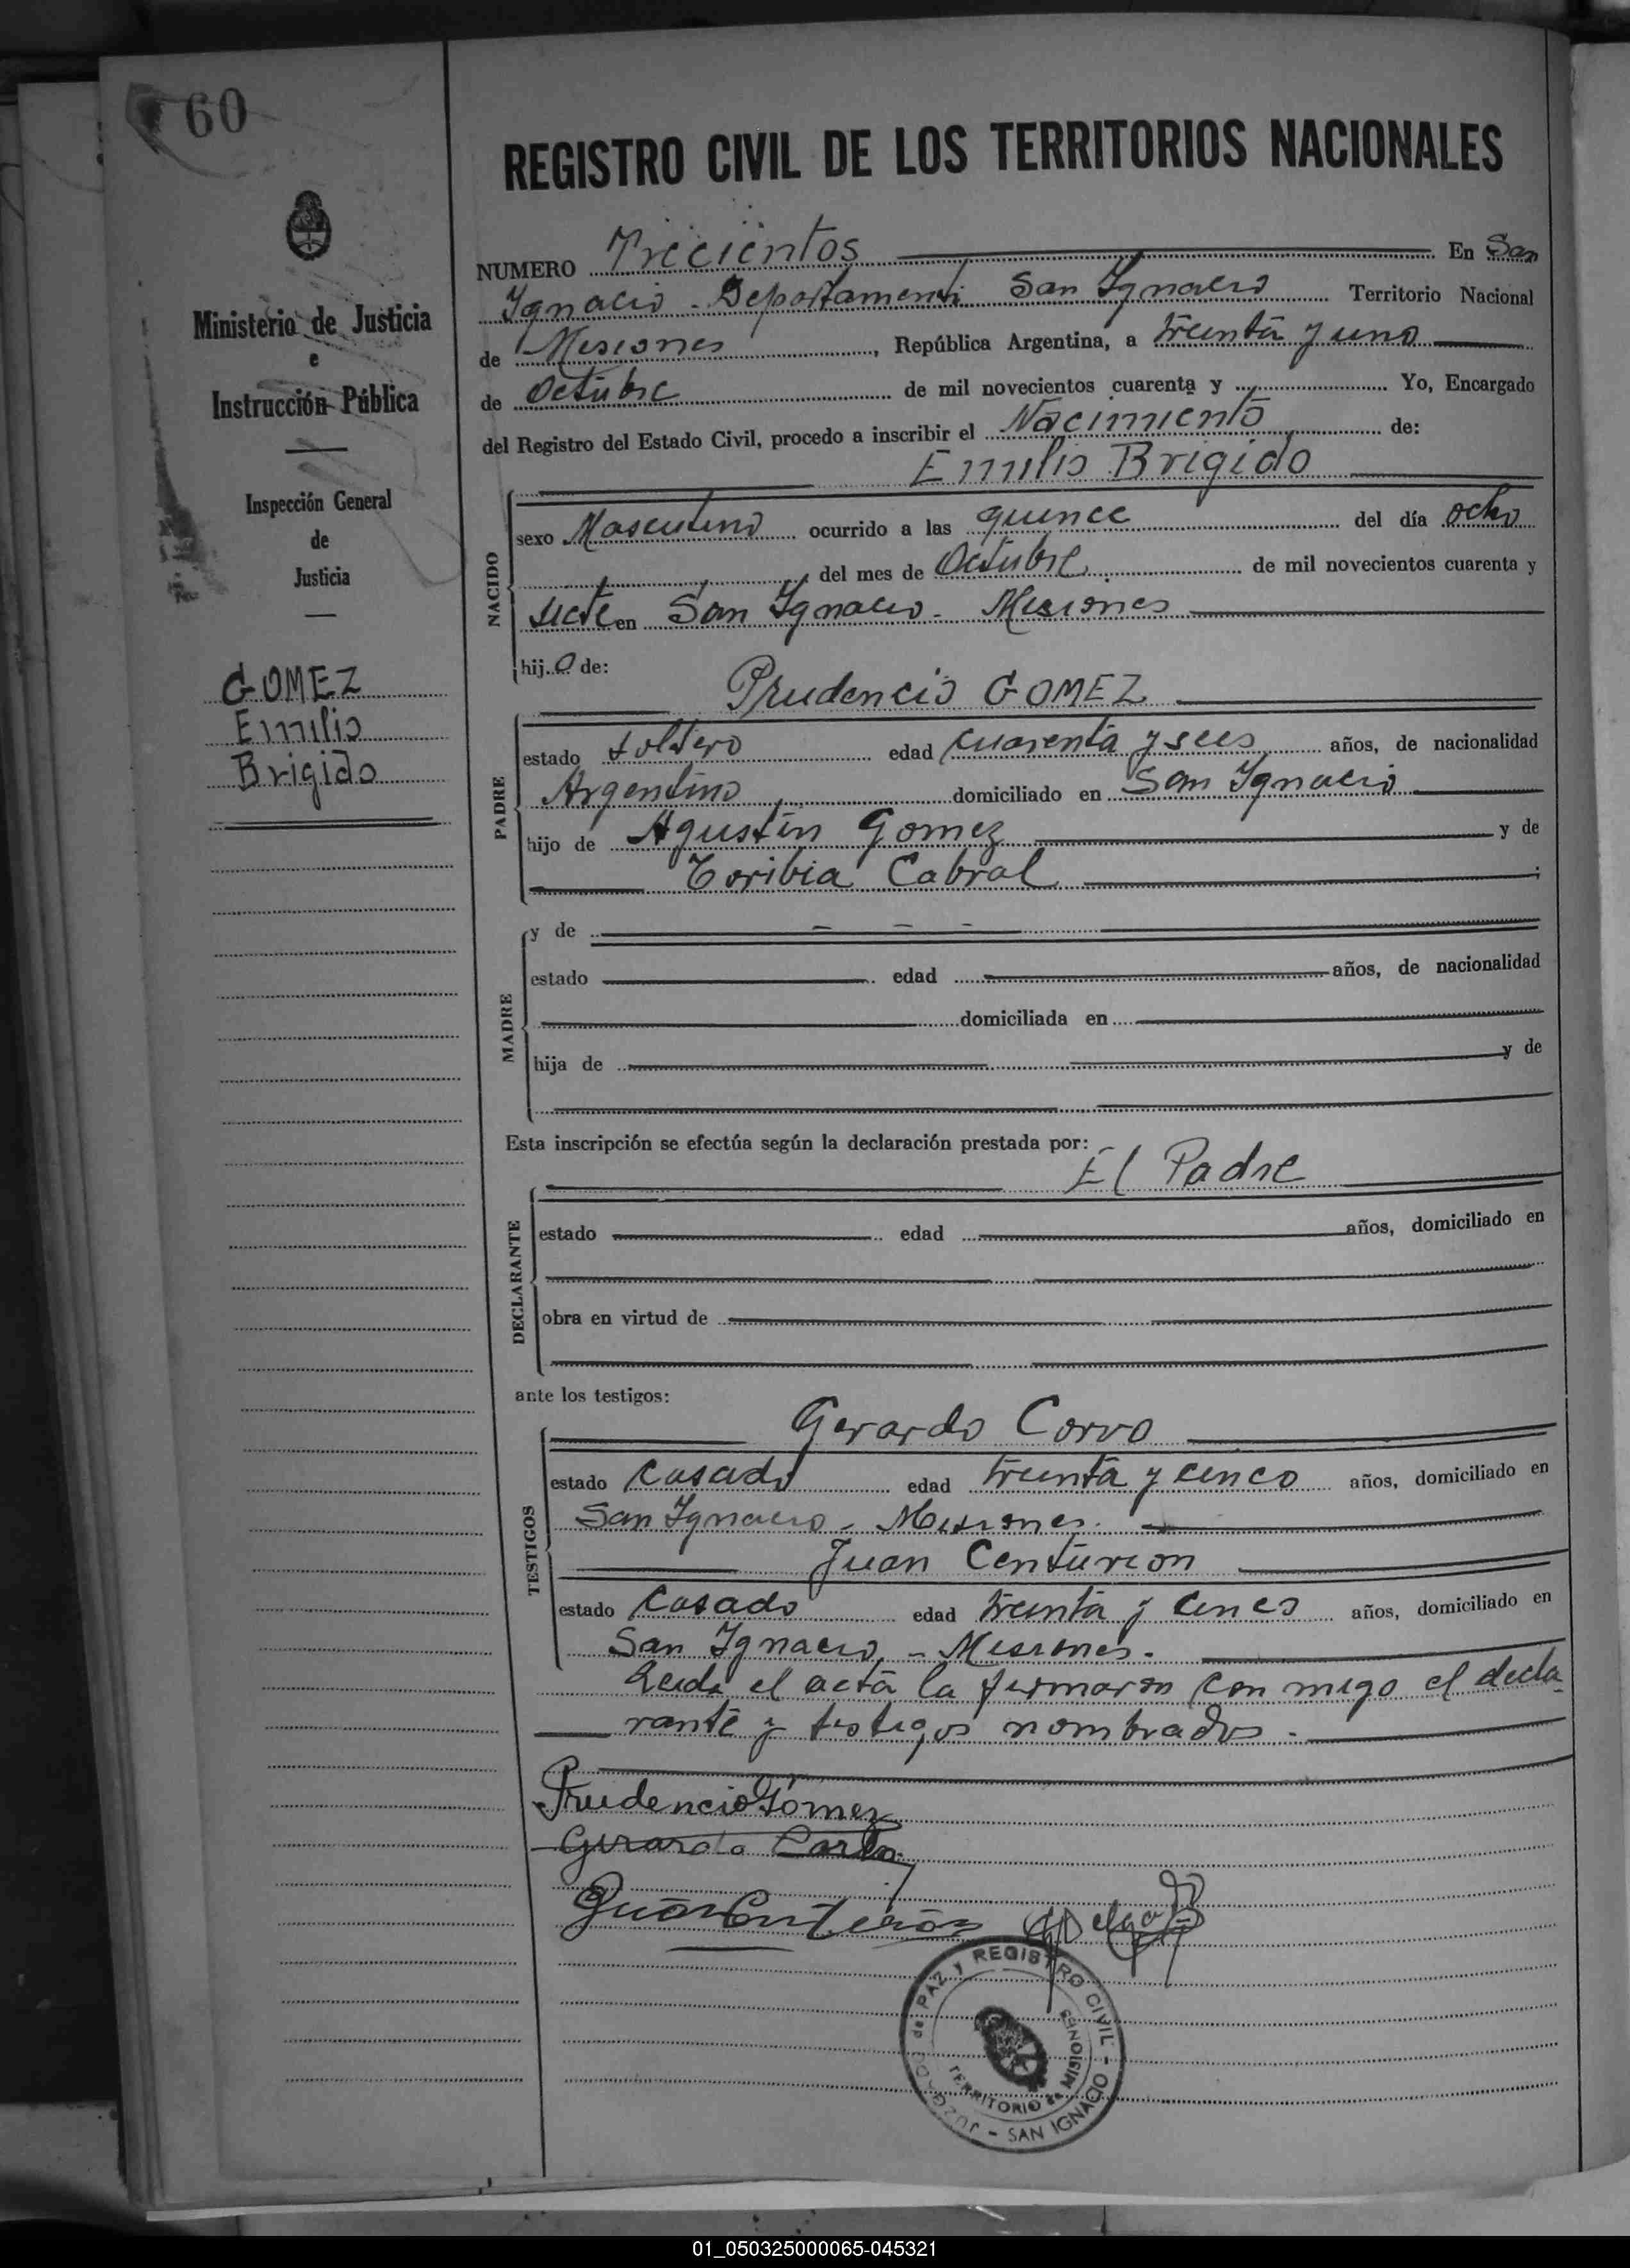 60
Ministerio de Justicia
e
Instrucción Pública
Inspección General
de
Justicia
GOMEZ
Emilio
Brigido
REGISTRO CIVIL DE LOS TERRITORIOS NACIONALES
NUMERO Trecientos En San
Ignacio - Departamento San Ignacio Territorio Nacional
de Misiones, República Argentina, a treinta y uno
de Octubre de mil novecientos cuarenta y Yo, Encargado
del Registro del Estado Civil, procedo a inscribir el Nacimiento de:
Emilio Brigido
NACIDO
sexo Masculino ocurrido a las quince del día ocho
del mes de Octubre de mil novecientos cuarenta y
siete en San Ignacio - Misiones
hijo de:
Prudencio GOMEZ
PADRE
estado soltero edad cuarenta y seis años, de nacionalidad
Argentino domiciliado en San Ignacio
hijo de Agustin Gomez y de
Toribia Cabral ;
MADRE
y de
estado edad años, de nacionalidad
domiciliada en
hija de y de
Esta inscripción se efectúa según la declaración prestada por:
El Padre
DECLARANTE
estado edad años, domiciliado en
obra en virtud de
ante los testigos:
Gerardo Corvo
TESTIGOS
estado casado edad treinta y cinco años, domiciliado en
San Ignacio - Misiones.
Juan Centurion
estado Casado edad treinta y cinco años, domiciliado en
San Ignacio - Misiones.
Leida el acta la firmaron con migo el decla-
rante y testigos nombrados.
Prudencio Gómez
Gerardo
Juan Centurion
JUZGADO de PAZ Y REGISTRO CIVIL - SAN IGNACIO -
TERRITORIO de MISIONES
01_050325000065-045321